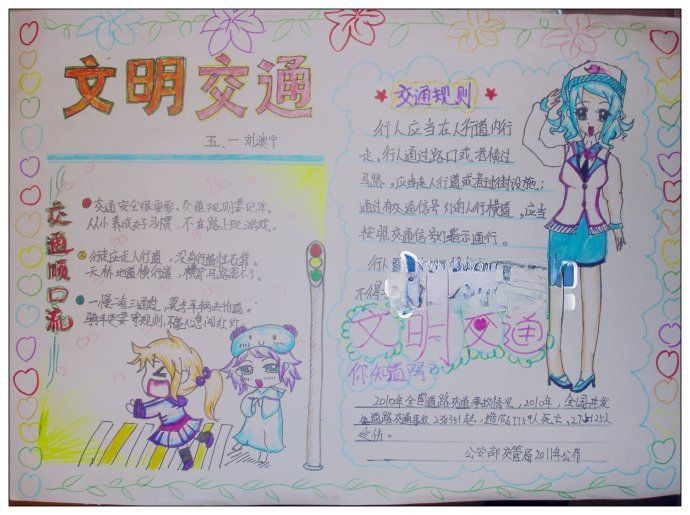 文明交通
五.一 刘
交通顺口流
交通安全很重要,交通规则要记牢。
从小养成好习惯,不在路上玩游戏。
行走应走人行道,没有行道往右靠。
天桥地道横行道,横穿马路
一慢二看三通过,莫与车辆去抢道。
骑车更要守规则,不能心急闯红灯
★交通规则★
行人应当在人行道内行
走,行人通过路口或者横过
马路,应当走人行道或者过街设施;
通过有交通信号灯的人行横道,应当
按照交通信号灯指示通行。
行人
不得
文明交通
你知道吗?
2010年全国道路交通事故情况,2010年,全国共发
生道路交通事故
受伤。
公安部交管局2011年公布